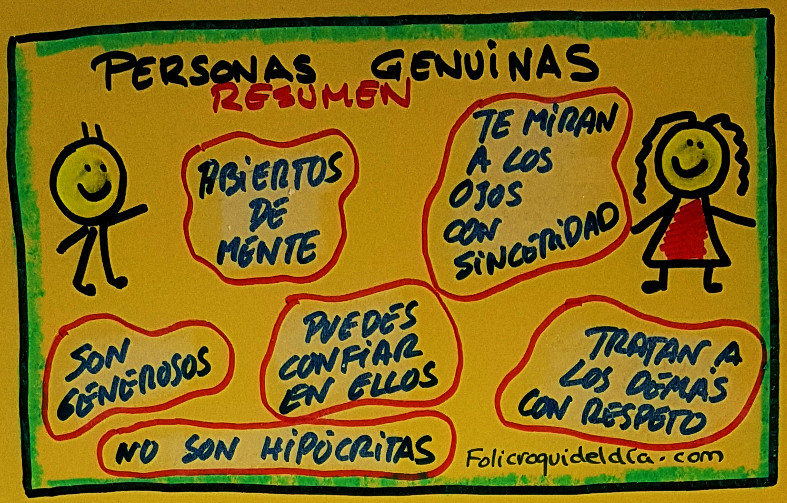 PERSONAS GENUINAS
RESUMEN
ABIERTOS
DE
MENTE
TE MIRAN
A LOS
OJOS
CON
SINCERIDAD
SON
GENEROSOS
PUEDES
CONFIAR
EN ELLOS
TRATAN A
LOS DEMÁS
CON RESPETO
NO SON HIPÓCRITAS
Folicroquideldía.com